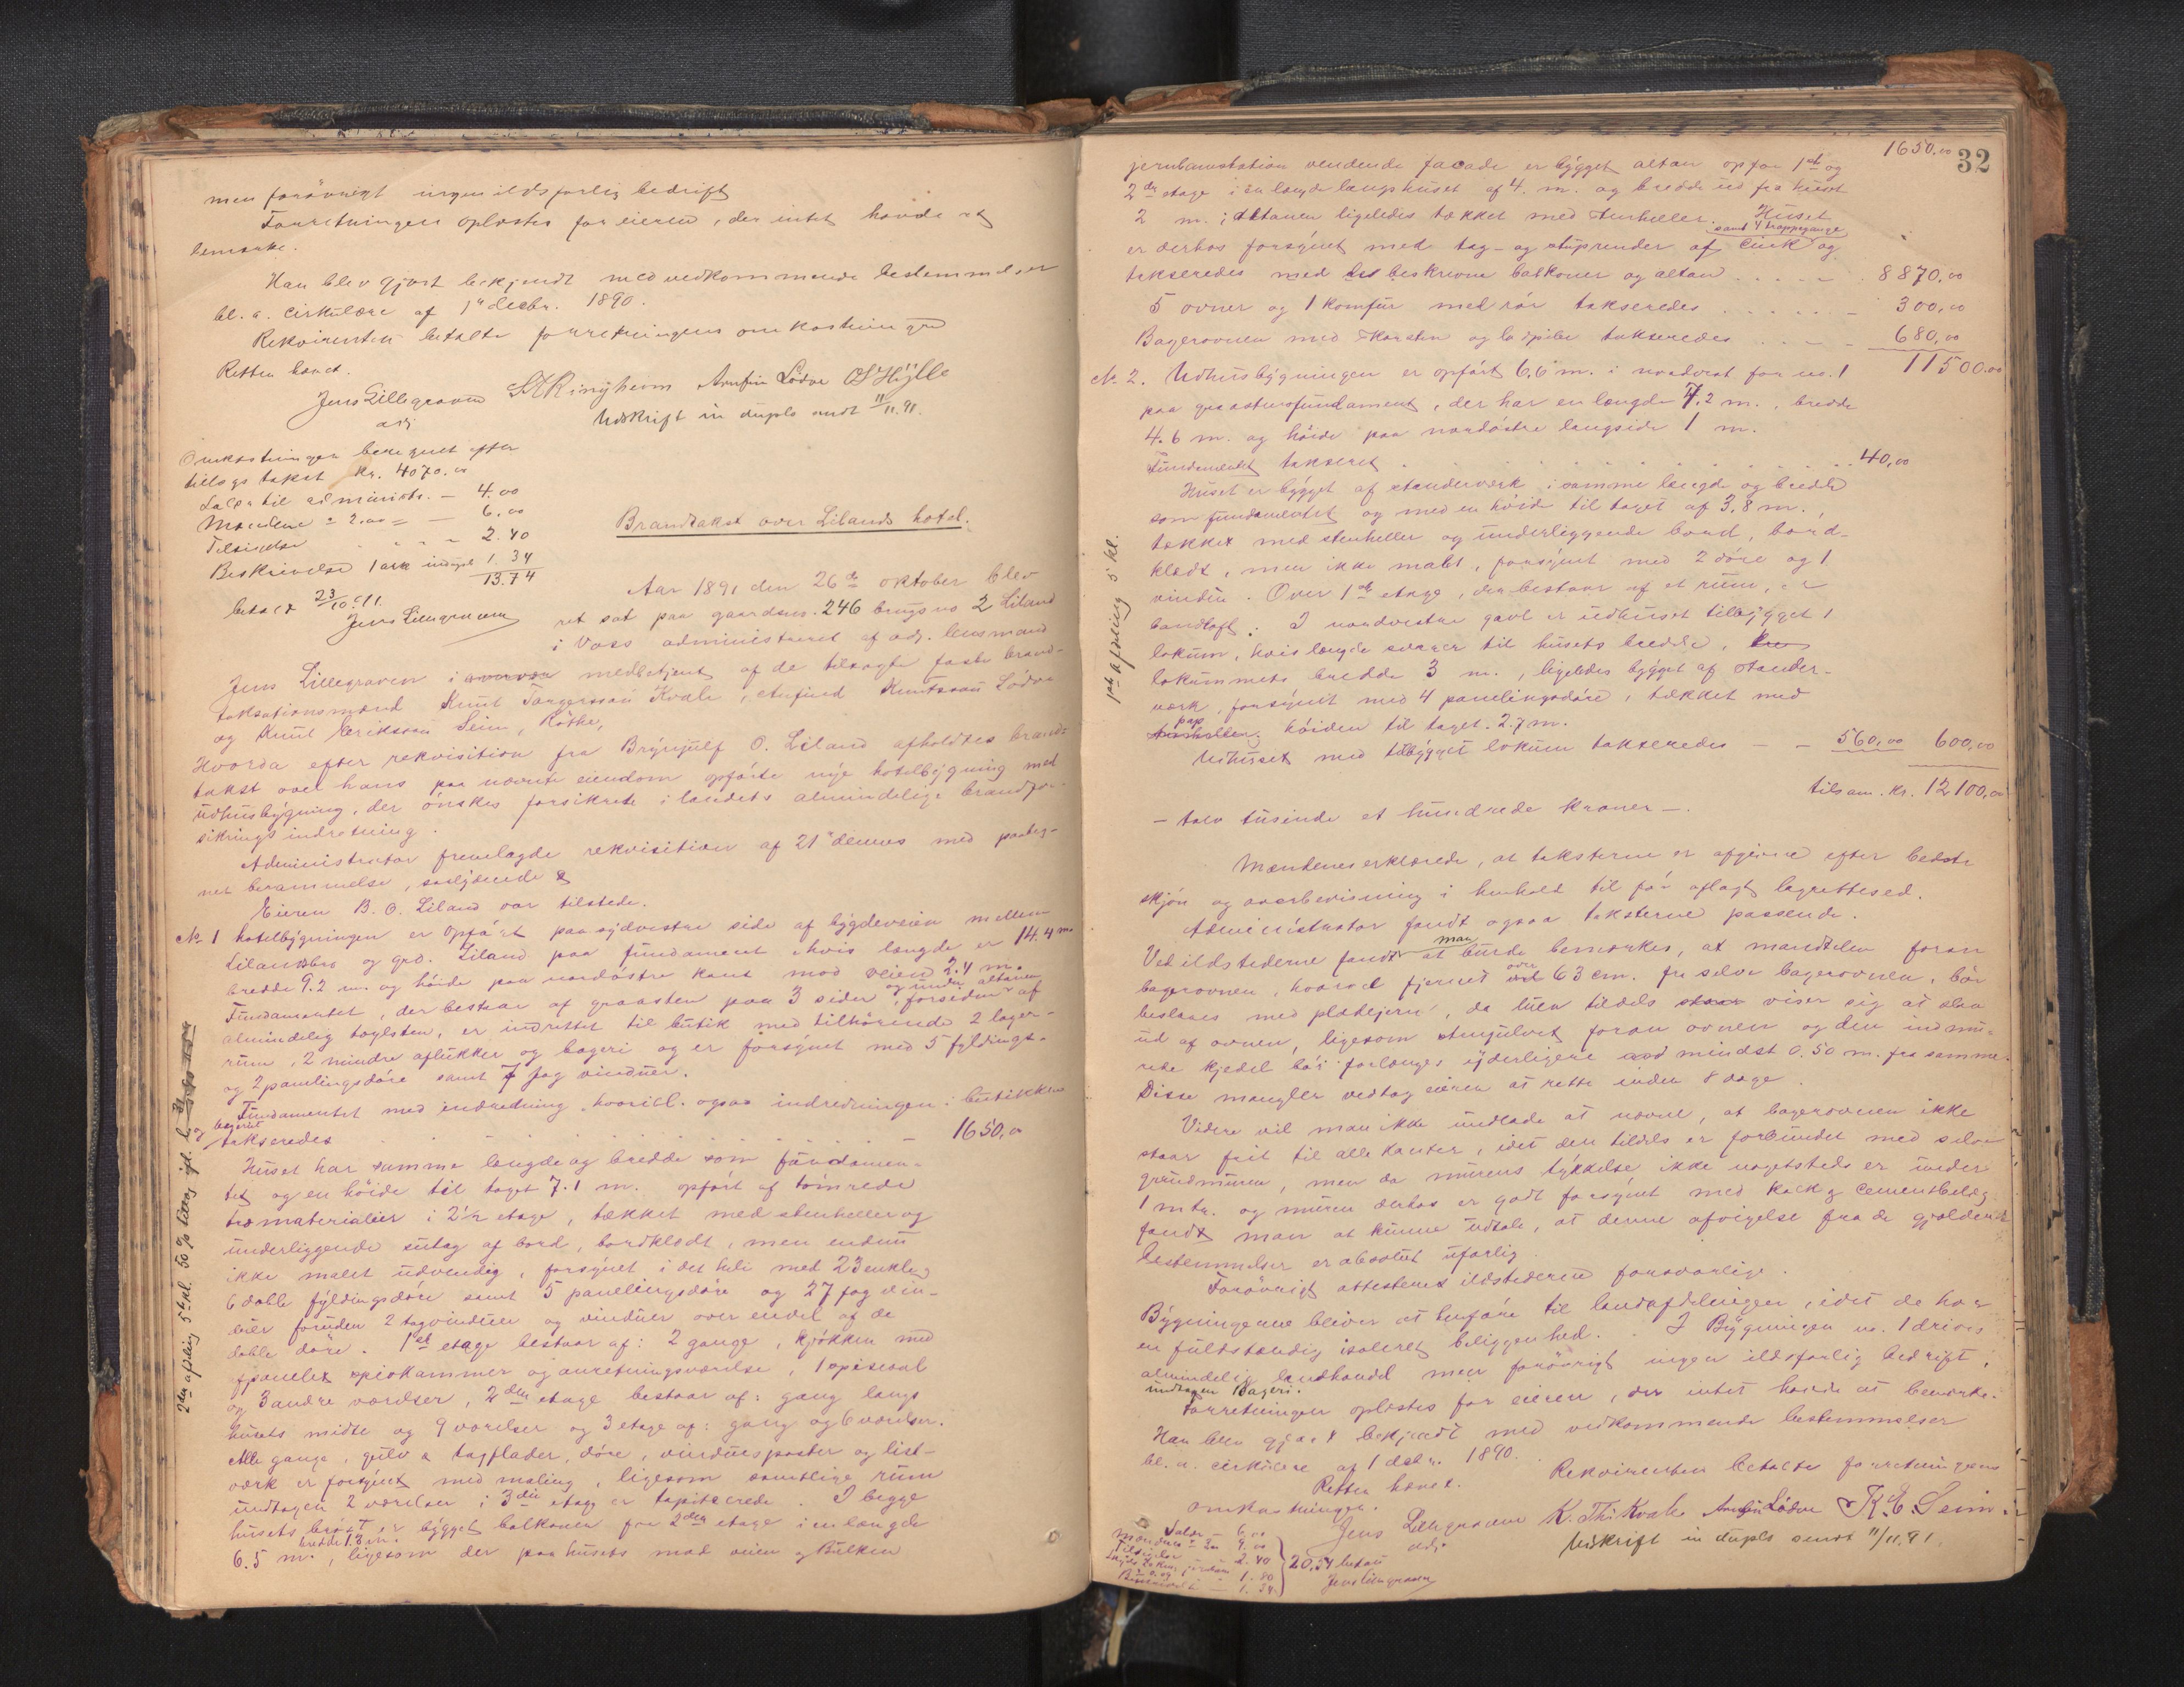 men forövrigt ingen ildsfarlig bedrift
Forretningen oplæstes for eieren, der intet havde at
bemærke.
Han blev gjort bekjendt med vedkommende bestemmelser
bl. a. cirkulære af 1ste decbr. 1890.
Rekvirenten betalte forretningens omkostninger
Retten hævet.
Jens Lillegraven Arnfin Lödve O S Hylle
adj.
Udskrift in duplo sendt 11/11.91.
Omkostninger beregnet efter
tillægs takst kr. 4070.00
Salær til administr. — 4.00
Mændene a 2.00 = — 6.00
Tilsigelse . . . — 2.40
Beskrivelse 1 ark in dupl. 1.34
13.74
betalt 23/10 91.
Jens Lillegraven
Brandtakst over Lilands hotel.
Aar 1891 den 26de oktober blev
ret sat paa gaardsno. 246 brugsno 2 Liland
i Voss administreret af adj. lensmand
Jens Lillegraven i medbetjent af de tilsagte faste brand-
taksationsmænd Knut Torgersson Kvale, Arnfind Knutsson Lödve
og Knut Eriksson Seim, Röthe,
Hvorda efter rekvisition fra Brynjulf O. Liland afholdtes brand-
takst over hans paa nævnte eiendom opförte nye hotelbygning med
udhusbygning, der önskes forsikrede i landets almindelige brandfor-
sikringsindretning.
Administrator fremlagde rekvisition af 21de dennes med paateg-
net berammelse, saalydende
Eieren B. O. Liland var tilstede.
No 1 hotelbygningen er opfört paa sydvestre side af bygdeveien mellem
Lilandsbro og grd. Liland paa fundament hvis længde er 14.4 m.
bredde 9.2 m. og höide paa nordöstre kant mod veien 2.4 m.
og under altanen
Fundamentet, der bestaar af graasten paa 3 sider, forsiden af
almindelig teglsten, er indrettet til butik med tilhörende 2 lager-
rum, 2 mindre aflukker og bageri og er forsynet med 5 fyldings-
og 2 panelingsdöre samt 7 fag vinduer.
Fundamentet med indredning hvori bl. ogsaa indredningen i butikken
og bageriet
takseredes . . . . . . . . . . — 1650,00
Huset har samme længde og bredde som fundamen-
tet og en höide til taget 7.1 m. opfört af tömrede
træmaterialier i 2½ etage, tækket med stenheller og
underliggende sutag af bord, bordklædt, men endnu
ikke malet udvendig, forsynet i det hele med 23 enkle,
6 doble fyldingsdöre samt 5 panelingsdöre og 27 fag vin-
duer foruden 2 tagvinduer og vinduer over endel af de
doble döre. 1ste etage bestaar af: 2 gange, kjökken med
panelet spiskammer og anretningsværelse, 1 spisesal
og 3 andre værelser, 2den etage bestaar af: gang langs
husets midte og 9 værelser og 3 etage af: gang og 6 værelser.
Alle gange, gulv & tagflader, döre, vinduesposter og list-
værk er forsynet med maling, ligesom samtlige rum
undtagen 2 værelser i 3die etage er tapitserede. I begge
husets bröst er bygget balkoner for 2den etage i en længde
bredde 1.3 m.
6.5 m., ligesom der paa husets mod veien og Bulken
1650.00
32
jernbanestation vendende facade er bygget altan opfor 1ste og
2den etage i en længde langs huset af 4. m. og bredde ud fra huset
2 m.; altanen ligeledes tækket med stenheller. Huset
samt 4 trappegange
er derhos forsynet med tag- og stuprender af zink og
takseredes med beskrevne balkoner og altan . . . . — 8870,00
5 ovner og 1 komfur med rör takseredes . . . . . — 300,00
Bagerovnen med skorsten og ladpibe takseredes . . . — 680,00
11500.00
No. 2. Udhusbygningen er opfört 6,6 m. i nordvest for no. 1
paa graastensfundament, der har en længde 7.2 m., bredde
4.6 m. og höide paa nordöstre langside 1 m.
Fundamentet takseret . . . . . . . . . 40,00
Huset er bygget af stenderværk i samme længde og bredde
som fundamentet og med en höide til taget af 3,8 m.,
tækket med stenheller og underliggende bord, bord-
klædt, men ikke malet, forsynet med 2 döre og 1
vindu. Over 1ste etage, der bestaar af et rum, er
bandloft. I nordvestre gavl er udhuset tilbygget 1
lokum, hvis længde svarer til husets bredde,
lokummets bredde 3 m., ligeledes bygget af stender-
værk, forsynet med 4 panelingsdöre, tækket med
pap
stenheller, höiden til taget 2.7 m.
Udhuset med tilbygget lokum takseredes — — 560,00 600,00
tilsam. Kr. 12100,00
— tolv tusinde et hundrede kroner —.
Mændenes erklærede, at taksterne er afgivne efter bedste
skjön og overbevisning i henhold til för aflagt lagrettesed.
Administrator fandt ogsaa taksterne passende.
man
Ved ildstederne fandt at burde bemærkes, at mandtelen foran
over
bagerovnen, hvorvel fjernet 63 cm. fra selve bagerovnen, bör
beslaaes med pladejern, da luen tildels viser sig at slaa
ud af ovnen, ligesom stengulvet foran ovnen og den indmu-
rede kjedel bör forlænges yderligere mindst 0.50 m. fra samme.
Disse mangler vedtog eieren at rette inden 8 dage.
Videre vil man ikke undlade at nævne, at bagerovnen ikke
staar frit til alle kanter, idet den tildels er forbundet med selve
grundmuren, men da murens tykkelse ikke nogetsteds er under
1 mtr. og muren derhos er godt forsynet med kalk og cementbelæg
fandt man at kunne udtale, at denne afvigelse fra de gjældende
bestemmelser er absolut ufarlig.
Forövrigt attesteres ildstederne forsvarlige.
Bygningerne bliver at henföre til landafdelingen, idet de har
en fuldstændig isoleret beliggenhed. I Bygningen no. 1 drives
almindelig landhandel men forövrigt ingen ildsfarlig bedrift,
undtagen Bageri.
Forretningen oplæstes for eieren, der intet havde at bemærke.
Han blev gjort bekjendt med vedkommende bestemmelser
bl. a. cirkulære af 1 decbr. 1890. Rekvirenten betalte forretningens
omkostninger. Retten hævet.
Jens Lillegraven K. Th. Kvale Arnfin Lödve K. E. Seim.
adj.
Udskrift in duplo sendt 11/11.91.
Salær — 6.00
Mændene — 9.00
Tilsigelse 2.40
1.80
1.34
20,54 betalt
Jens Lillegraven
1ste afdeling 5 kl.
2den afdeling 5te kl. 50 %